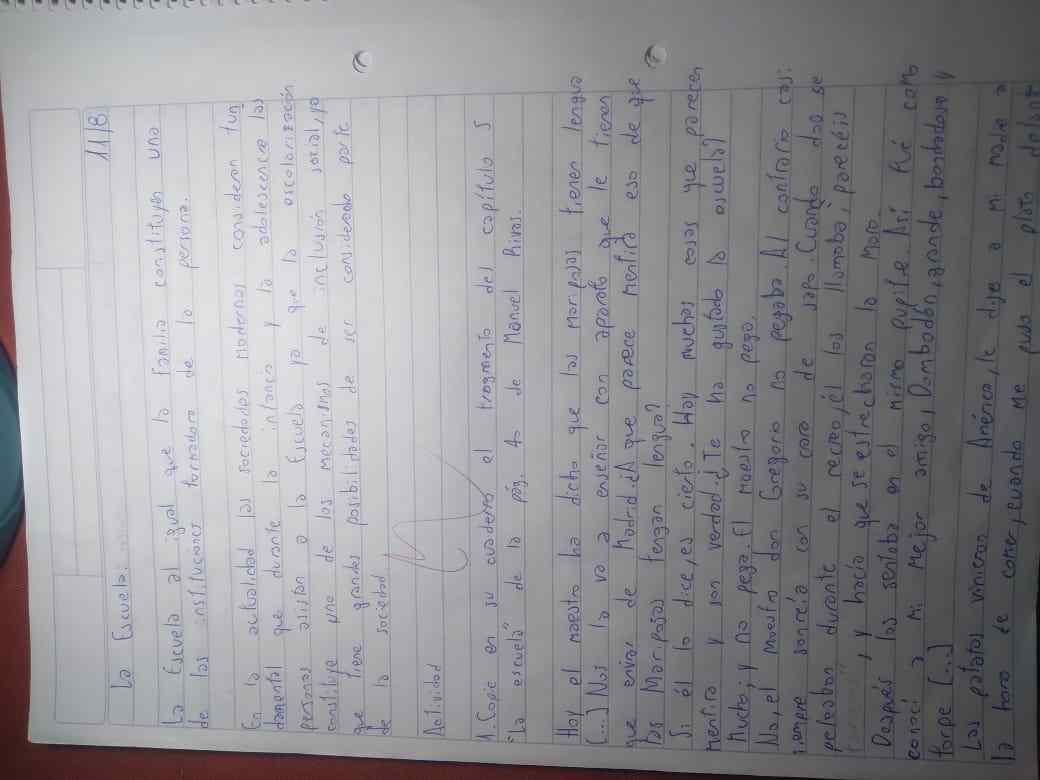 11/8
La Escuela.
La Escuela al igual que la familia constituyen una
de las instituciones formadora de la persona.
En la actualidad las sociedades modernas consideran fun
damental que durante la infancia y la adolescencia las
personas asistan a la Escuela ya que la escolarización
constituye uno de los mecanismos de inclusión social, ya
que tiene grandes posibilidades de ser considerado parte
de la sociedad
Actividad
1. Copie en su cuaderno el fragmento del capítulo 5
"La escuela" de la pág. 40 de Manuel Rivas.
Hoy el maestro ha dicho que las mariposas tienen lengua
(...) Nos la va a enseñar con aparato que le tienen
que enviar de Madrid. ¿A que parece mentira eso de que
las Mariposas tengan lengua?
Si él lo dice, es cierto. Hay muchas cosas que parecen
mentira y son verdad. ¿Te ha gustado la escuela?
Mucho; y no pega. El maestro no pega.
No, el maestro don Gregorio no pegaba. Al contrario casi
siempre sonreía con su cara de sapo. Cuando dos se
peleaban durante el recreo, él los llamaba, "parecéis
, y hacía que se estrecharan la Mano.
Después los sentaba en el mismo pupitre. Así fué como
conocí a mi mejor amigo, Dombodán, grande, bondadoso y
torpe [...]
Las patatas vinieron de América, le dije a mi madre a
la hora de comer, cuando me puso el plato delant